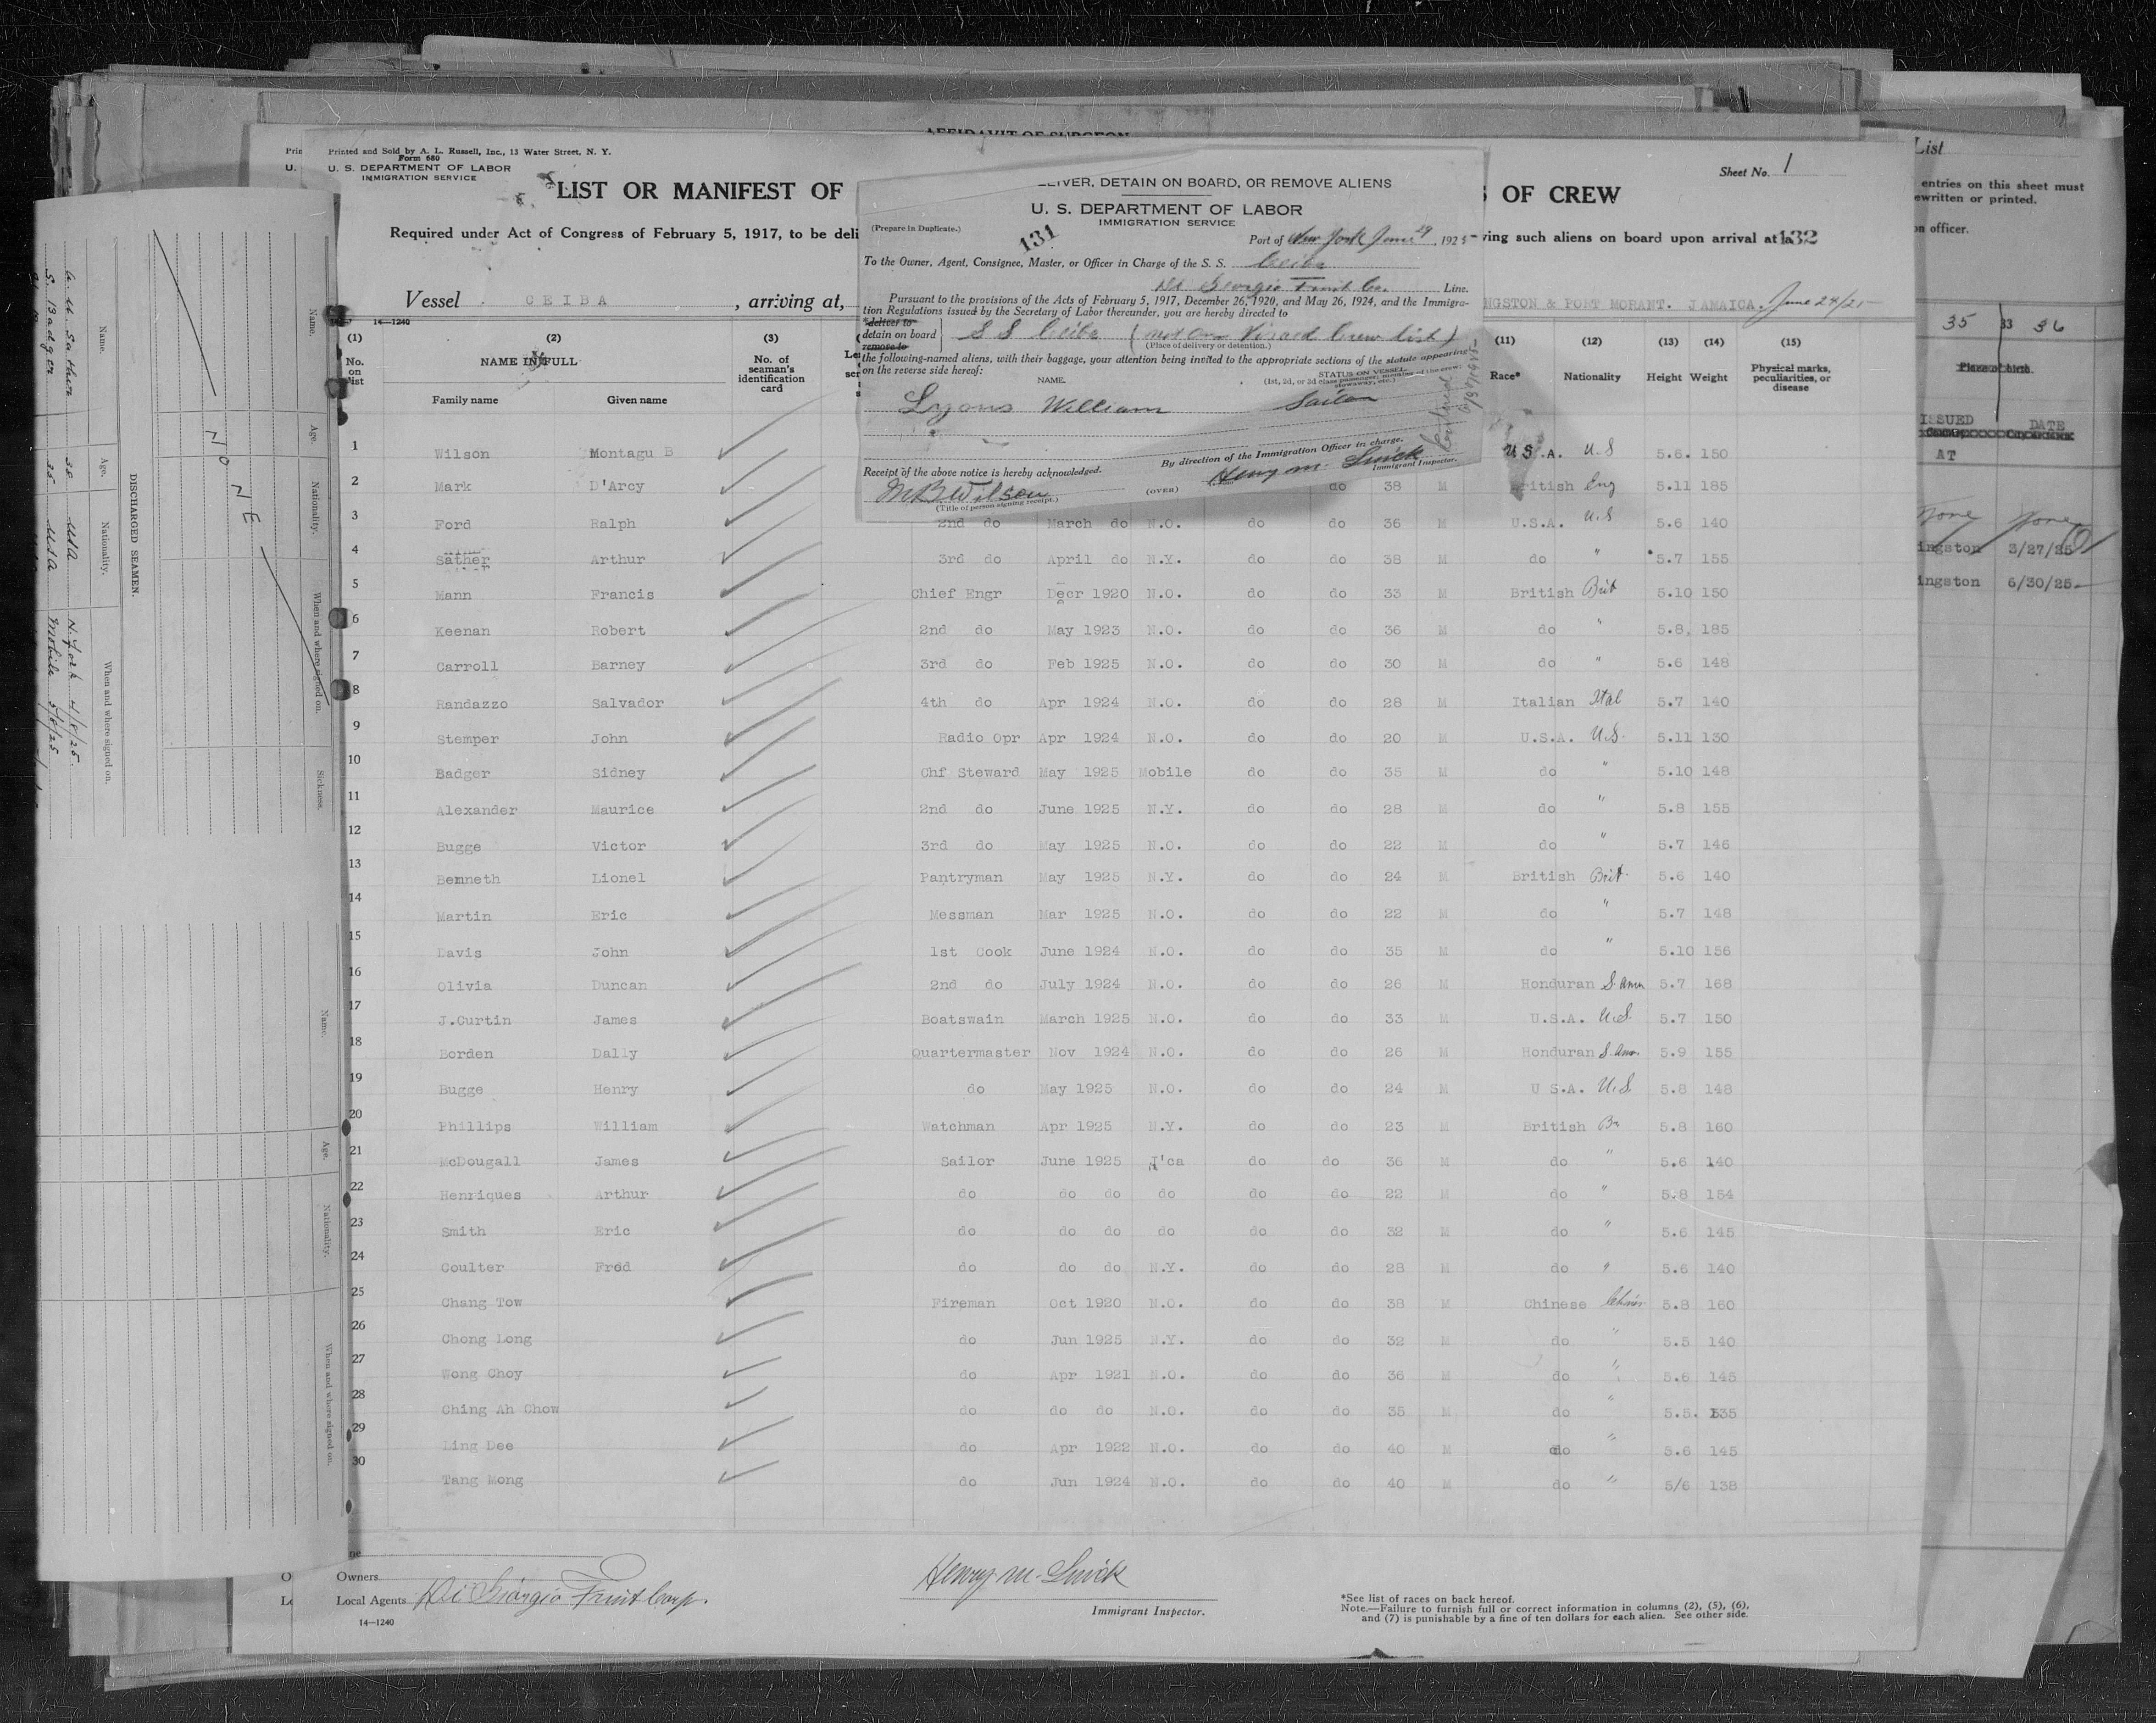 AFFIDAVIT OF SURGEON
Printed and Sold by A. L. Russell, Inc., 13 Water Street, N. Y.
Form 680
U. S. DEPARTMENT OF LABOR
IMMIGRATION SERVICE
Sheet No. 1
LIST OR MANIFEST OF
S OF CREW
Required under Act of Congress of February 5, 1917, to be deli
ving such aliens on board upon arrival at
132
Vessel CEIBA , arriving at,
NGSTON & PORT MORANT. JAMAICA. June 24/25
DELIVER, DETAIN ON BOARD, OR REMOVE ALIENS
U. S. DEPARTMENT OF LABOR
IMMIGRATION SERVICE
(Prepare in Duplicate.)
131
Port of New York June 29, 1925
To the Owner, Agent, Consignee, Master, or Officer in Charge of the S. S. Ceiba
Di Georgio Fruit Co. Line.
Pursuant to the provisions of the Acts of February 5, 1917, December 26, 1920, and May 26, 1924, and the Immigra-
tion Regulations issued by the Secretary of Labor thereunder, you are hereby directed to
*deliver to
detain on board
remove to
S S Ceiba (not on Visaed Crew list)
(Place of delivery or detention.)
the following-named aliens, with their baggage, your attention being invited to the appropriate sections of the statute appearing
on the reverse side hereof:
NAME.
STATUS ON VESSEL.
(1st, 2d, or 3d class passenger, member of the crew, stowaway, etc.)
Lyons William Sailor
By direction of the Immigration Officer in charge.
Receipt of the above notice is hereby acknowledged.
Henry M. Smick
Immigrant Inspector.
M B Wilson
(Title of person signing receipt.)
(OVER)
14—1240
(1) (2) (3) (11) (12) (13) (14) (15)
No. on list
NAME IN FULL
Family name Given name
No. of seaman's identification card
Race* Nationality Height Weight Physical marks, peculiarities, or disease
1 Wilson Montagu B U S.A. U.S 5.6. 150
2 Mark D'Arcy do 38 M British Eng 5.11 185
3 Ford Ralph 2nd do March do N.O. do do 36 M U.S.A. U.S 5.6 140
4 Sather Arthur 3rd do April do N.Y. do do 38 M do " 5.7 155
5 Mann Francis Chief Engr Decr 1920 N.O. do do 33 M British Brit 5.10 150
6 Keenan Robert 2nd do May 1923 N.O. do do 36 M do " 5.8, 185
7 Carroll Barney 3rd do Feb 1925 N.O. do do 30 M do " 5.6 148
8 Randazzo Salvador 4th do Apr 1924 N.O. do do 28 M Italian Ital 5.7 140
9 Stemper John Radio Opr Apr 1924 N.O. do do 20 M U.S.A. U.S. 5.11 130
10 Badger Sidney Chf Steward May 1925 Mobile do do 35 M do " 5.10 148
11 Alexander Maurice 2nd do June 1925 N.Y. do do 28 M do " 5.8 155
12 Bugge Victor 3rd do May 1925 N.O. do do 22 M do " 5.7 146
13 Benneth Lionel Pantryman May 1925 N.Y. do do 24 M British Brit. 5.6 140
14 Martin Eric Messman Mar 1925 N.O. do do 22 M do " 5.7 148
15 Davis John 1st Cook June 1924 N.O. do do 35 M do " 5.10 156
16 Olivia Duncan 2nd do July 1924 N.O. do do 26 M Honduran S. Am 5.7 168
17 J.Curtin James Boatswain March 1925 N.O. do do 33 M U.S.A. U.S. 5.7 150
18 Borden Dally Quartermaster Nov 1924 N.O. do do 26 M Honduran S. Am. 5.9 155
19 Bugge Henry do May 1925 N.O. do do 24 M U S.A. U.S. 5.8 148
20 Phillips William Watchman Apr 1925 N.Y. do do 23 M British Br 5.8 160
21 McDougall James Sailor June 1925 J'ca do do 36 M do " 5.6 140
22 Henriques Arthur do do do do do do 22 M do " 5.8 154
23 Smith Eric do do do do do do 32 M do " 5.6 145
24 Coulter Fred do do do N.Y. do do 28 M do " 5.6 140
25 Chang Tow Fireman Oct 1920 N.O. do do 38 M Chinese Chin 5.8 160
26 Chong Long do Jun 1925 N.Y. do do 32 M do " 5.5 140
27 Wong Choy do Apr 1921 N.O. do do 36 M do " 5.6 145
28 Ching Ah Chow do do do N.O. do do 35 M do " 5.5. 135
29 Ling Dee do Apr 1922 N.O. do do 40 M do " 5.6 145
30 Tang Mong do Jun 1924 N.O. do do 40 M do " 5/6 138
Owners
Local Agents Di Giorgio Fruit Corp.
14—1240
Henry M. Smick
Immigrant Inspector.
*See list of races on back hereof.
Note.—Failure to furnish full or correct information in columns (2), (5), (6),
and (7) is punishable by a fine of ten dollars for each alien. See other side.
List
entries on this sheet must
ewritten or printed.
on officer.
35 33 36
ISSUED DATE
AT
None None
ingston 3/27/25
ingston 6/30/25
DISCHARGED SEAMEN.
Name. Age. Nationality. When and where signed on.
S. Badger 35 USA Mobile 5/8/25
38 USA N. York 4/8/25
Name. Age. Nationality. When and where signed on. Sickness.
NONE
Name. Age. Nationality. When and where signed on.